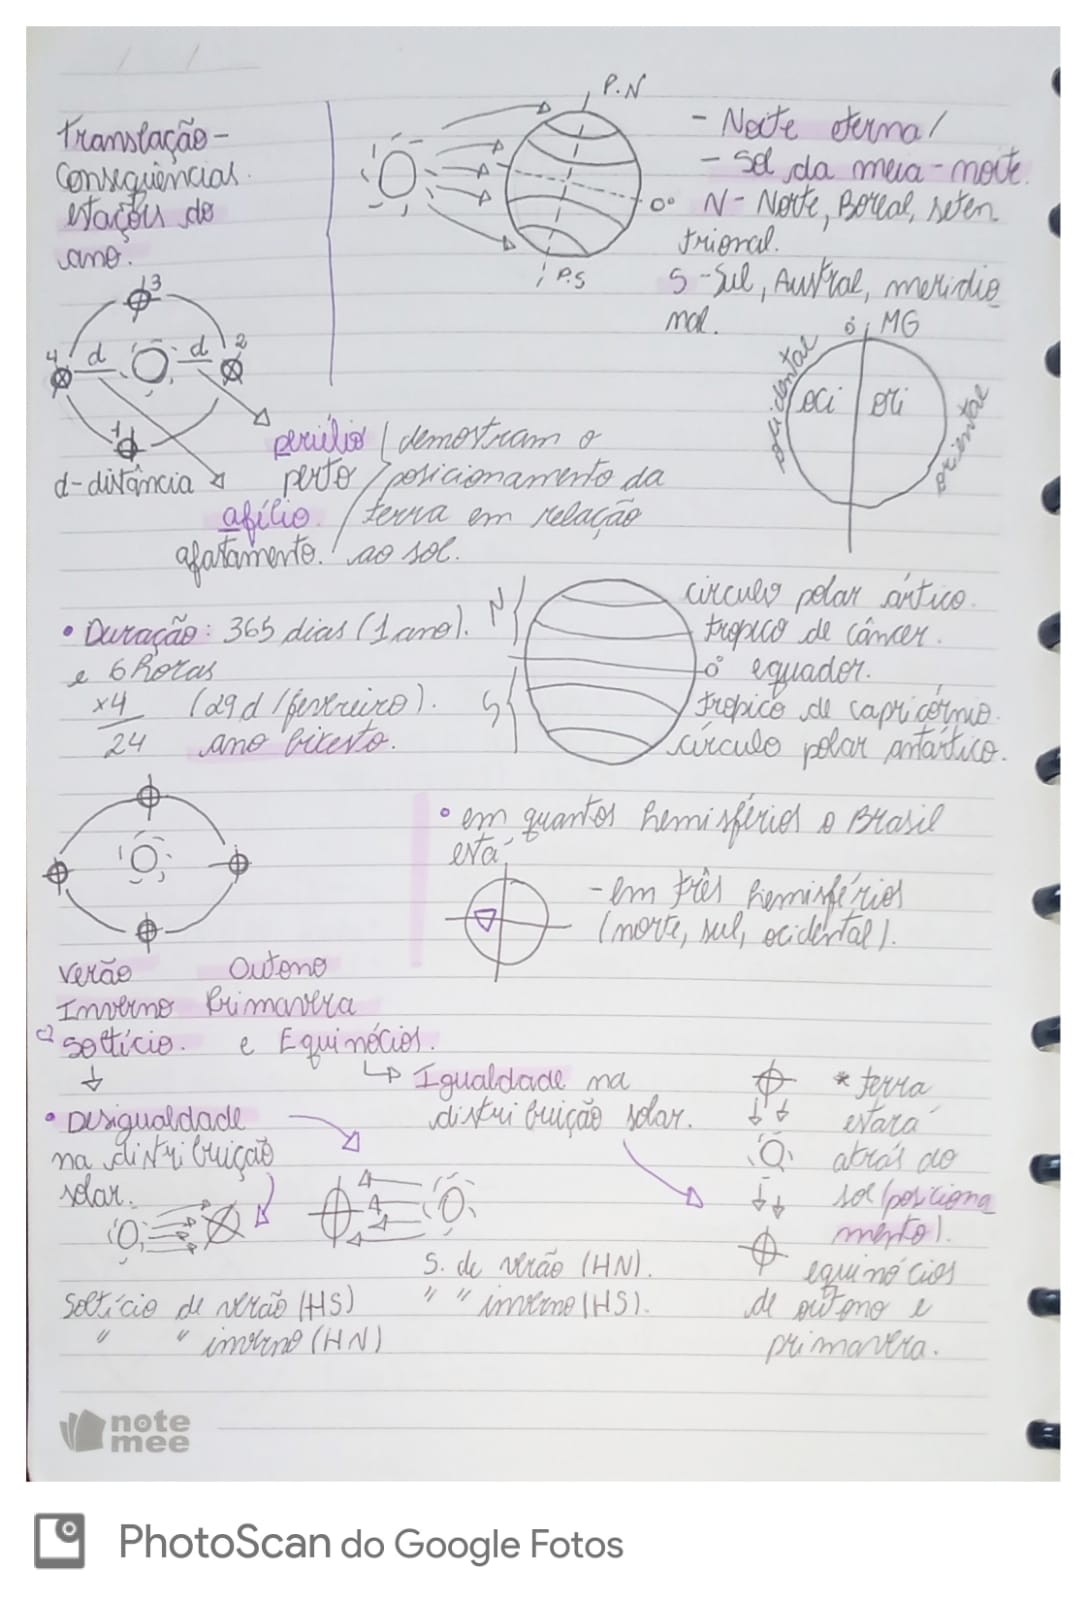 Translação -
Consequências.
estações do
ano.
P.N
0°
P.S
- Noite eterna/
- Sol da meia-noite.
N - Norte, Boreal, seten
trional.
S - Sul, Austral, meridio
nal.
0° MG
ocidental
oci
ori
oriental
3
4
d
d
2
1
d-distância
periélio
perto
afélio.
afatamento.
demostram o
posicionamento da
terra em relação
ao sol.
• Duração: 365 dias (1 ano).
e 6 horas
x4
24
(29 d/fevereiro).
ano bixesto.
N
S
círculo polar ártico.
tropico de câncer.
0° equador.
tropico de capricórnio.
círculo polar antártico.
• em quantos hemisférios o Brasil
está
- em três hemisférios
(norte, sul, ocidental).
Verão Outono
Inverno Primavera
Soltício. e Equinócios.
Igualdade na
distribuição solar.
• Desigualdade
na distribuição
solar.
Soltício de verão (HS)
" " inverno (HN)
S. de verão (HN).
" " inverno (HS).
* terra
estará
atrás do
sol (posiciona
mento).
equinócios
de outono e
primavera.
note
mee
PhotoScan do Google Fotos